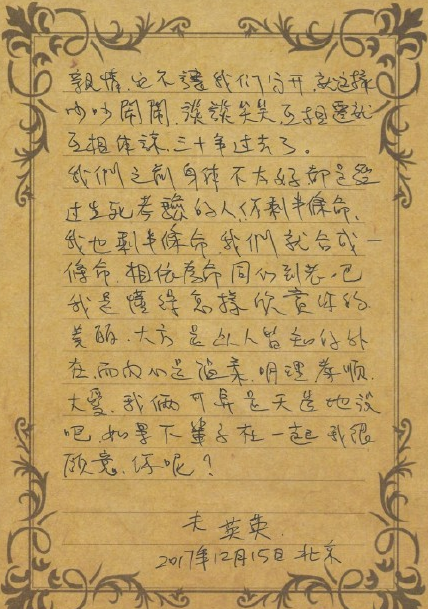 親情也不讓我们分开.就这樣
吵吵鬧鬧.談談笑笑.互相遷就
互相体諒.三十年过去了。
我們之前身体不太好都是經
过生死考驗的人.你剩半條命.
我也剩半條命.我們就合成一
條命.相依為命同们到老吧
我是懂得怎樣欣賞你的
美丽.大方是众人皆知的外
在.而内心是温柔.明理孝順.
大愛.我倆可算是天造地設
吧.如果下輩子在一起我很
願意.你呢？
夫 英英.
2017年12月15日 北京